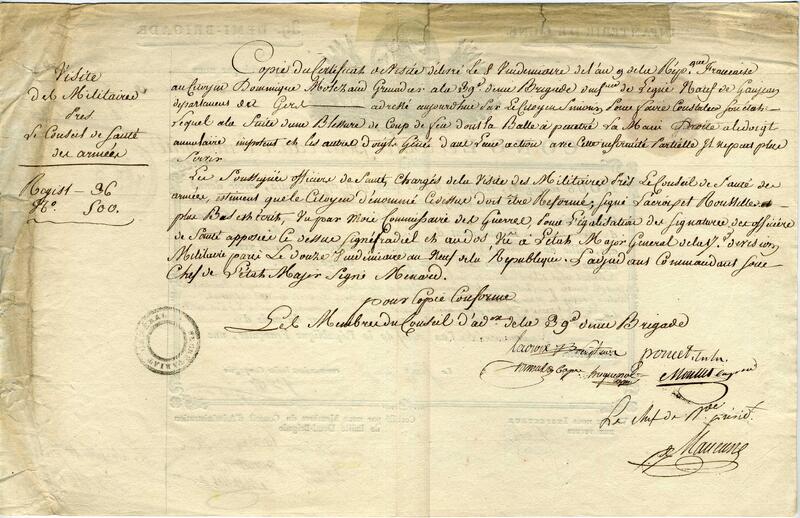 Visite
des Militaires
Près
Le Conseil de Santé
des armées
Regist – 36
N.o 500.
Copie du Certificat de Visite délivré Le 8 Vindemiaire de l'an 9 de la Rép.que Française
au Citoyen Dominique Grenadier a la 39.e demi Brigade de Ligne Natif de
departement de Gers adressé aujourdhuy Par Le Citoyen Pour faire Constater Son état
lequel a la Suite d'une Blessure de Coup de feu dont la Balle à penetré La Main Droite a le doigt
annulaire impotent et les autres doigts Génés dans Leur action avec Cette infirmité Partielle Il ne peut plus
Servir
Les Soussignés officiers de Santé Chargés de la Visite des Militaires Près Le Conseil de Santé des
armées, estiment que le Citoyen dénommé Cidessus doit être Reformé, signé Lacroix et
plus Bas est écrit, Vu par Moi Commissaire des Guerres, pour Légalisation des Signatures des officiers
de Santé apposée Ci dessus signé Fradiel et au dos Vu a L'état Major General de la 17.e division
Militaire paris Le Douze Vindemiaire an Neuf de la Republique. L'adjudant Commandant Sous
Chef de L'état Major Signé Menard.
pour Copie Conforme
Les Membres du Conseil d'ad.on de la 39.e demi Brigade
poncet
Le Chef de B.de présid.t
Maucune